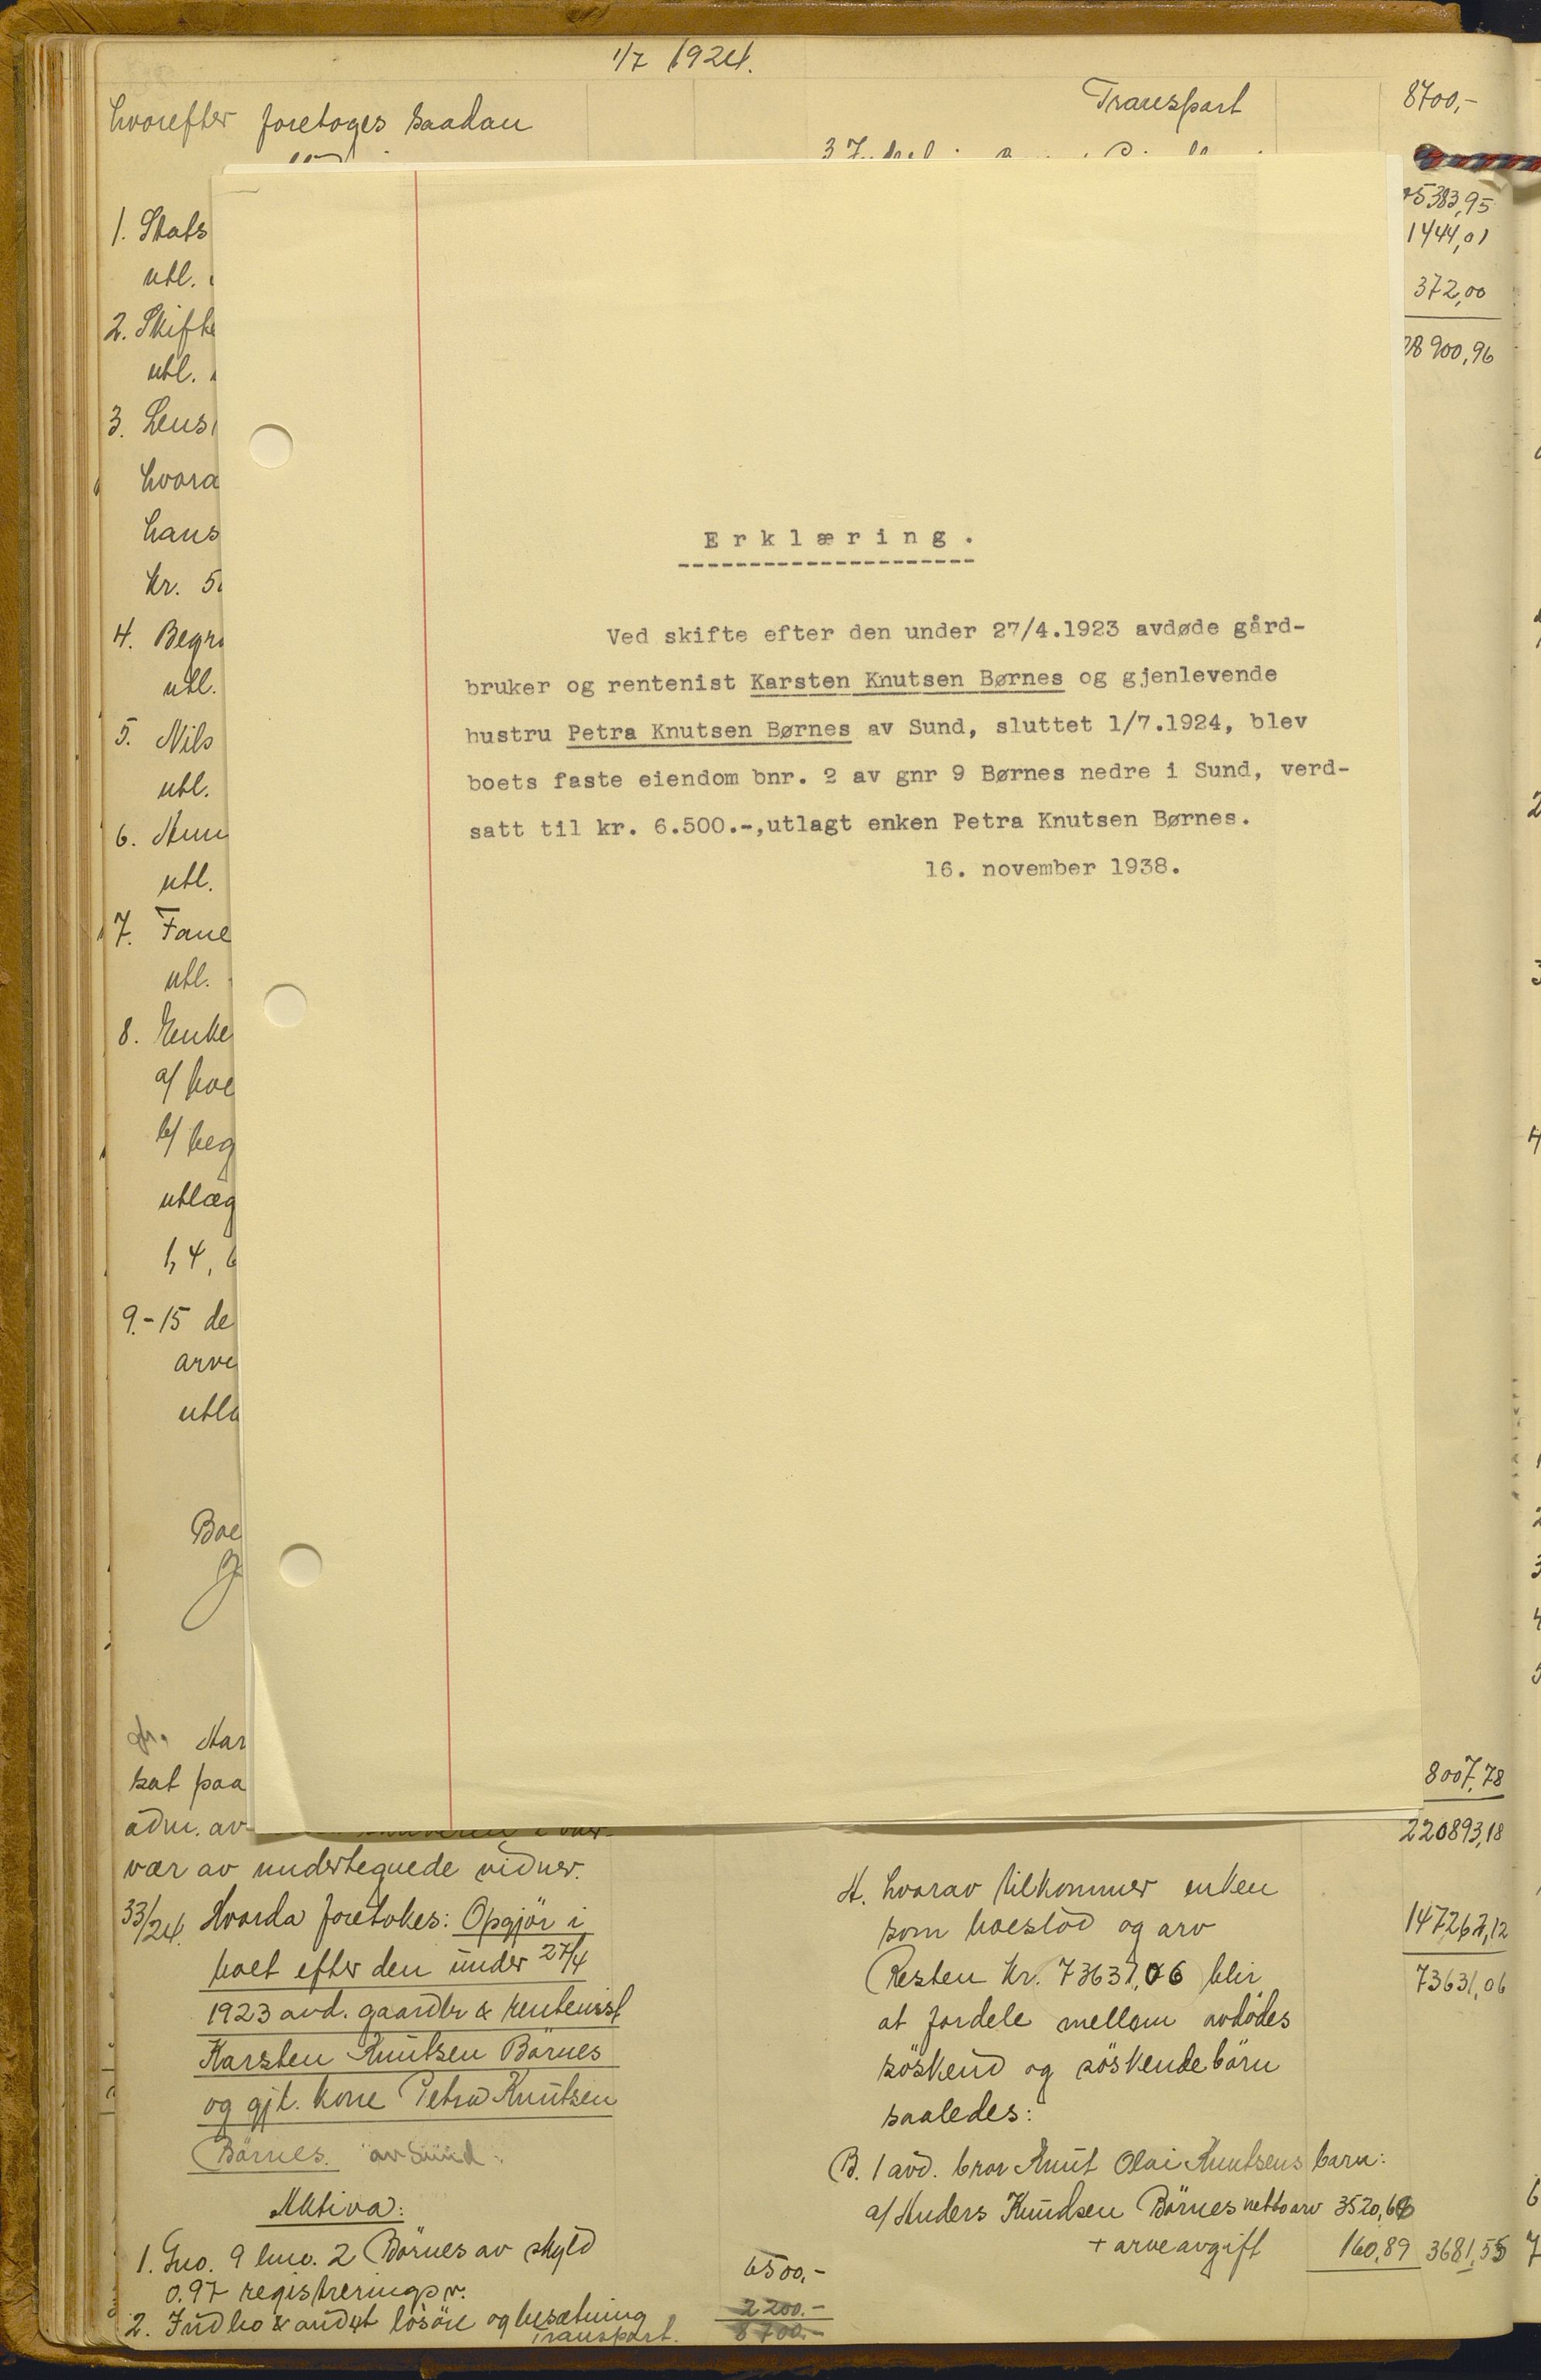 1/7 1924.
hvorefter foretoges saadan
1. Stats
utl.
2. Skifte
utl.
3. Lens
hvora
hans
kr. 5
4. Begr
utl.
5. Nils
utl.
6. Ann
utl.
7. Fane
utl.
8. Enke
a/ boe
b/ beg
utlæg
1, 4, 6
9.-15 de
arve
utla
Boe
Mar
sat paa
adm. av
vær av undertegnede vidner.
33/24. Hvorda foretokes: Opgjör i
boet efter den under 27/4
1923 avd. gaardbr & rentenist
Karsten Knutsen Börnes
og gjl. kone Petra Knutsen
Börnes. av Sund.
Aktiva:
1. Gno. 9 bno. 2 Börnes av skyld
0.97 registreringsv. 6500,-
2. Indbo & andet lösöre og besætning 2200.-
Transport. 8700.-
Erklæring.
Ved skifte efter den under 27/4.1923 avdøde gård-
bruker og rentenist Karsten Knutsen Børnes og gjenlevende
hustru Petra Knutsen Børnes av Sund, sluttet 1/7.1924, blev
boets faste eiendom bnr. 2 av gnr 9 Børnes nedre i Sund, verd-
satt til kr. 6.500.-,utlagt enken Petra Knutsen Børnes.
16. november 1938.
Transport 8700,-
5383,95
1444,01
372,00
8900,96
8007,78
220893,18
A. hvorav tilkommer enken
som boeslod og arv 147262,12
Resten kr. 73631,06 blir 73631,06
at fordele mellem avdödes
söskend og söskendebörn
saaledes:
B. 1 avd. bror Knut Olai Knutsens barn:
a/ Anders Knudsen Börnes netto arv 3520,66
+ arveavgift 160,89 3681,55